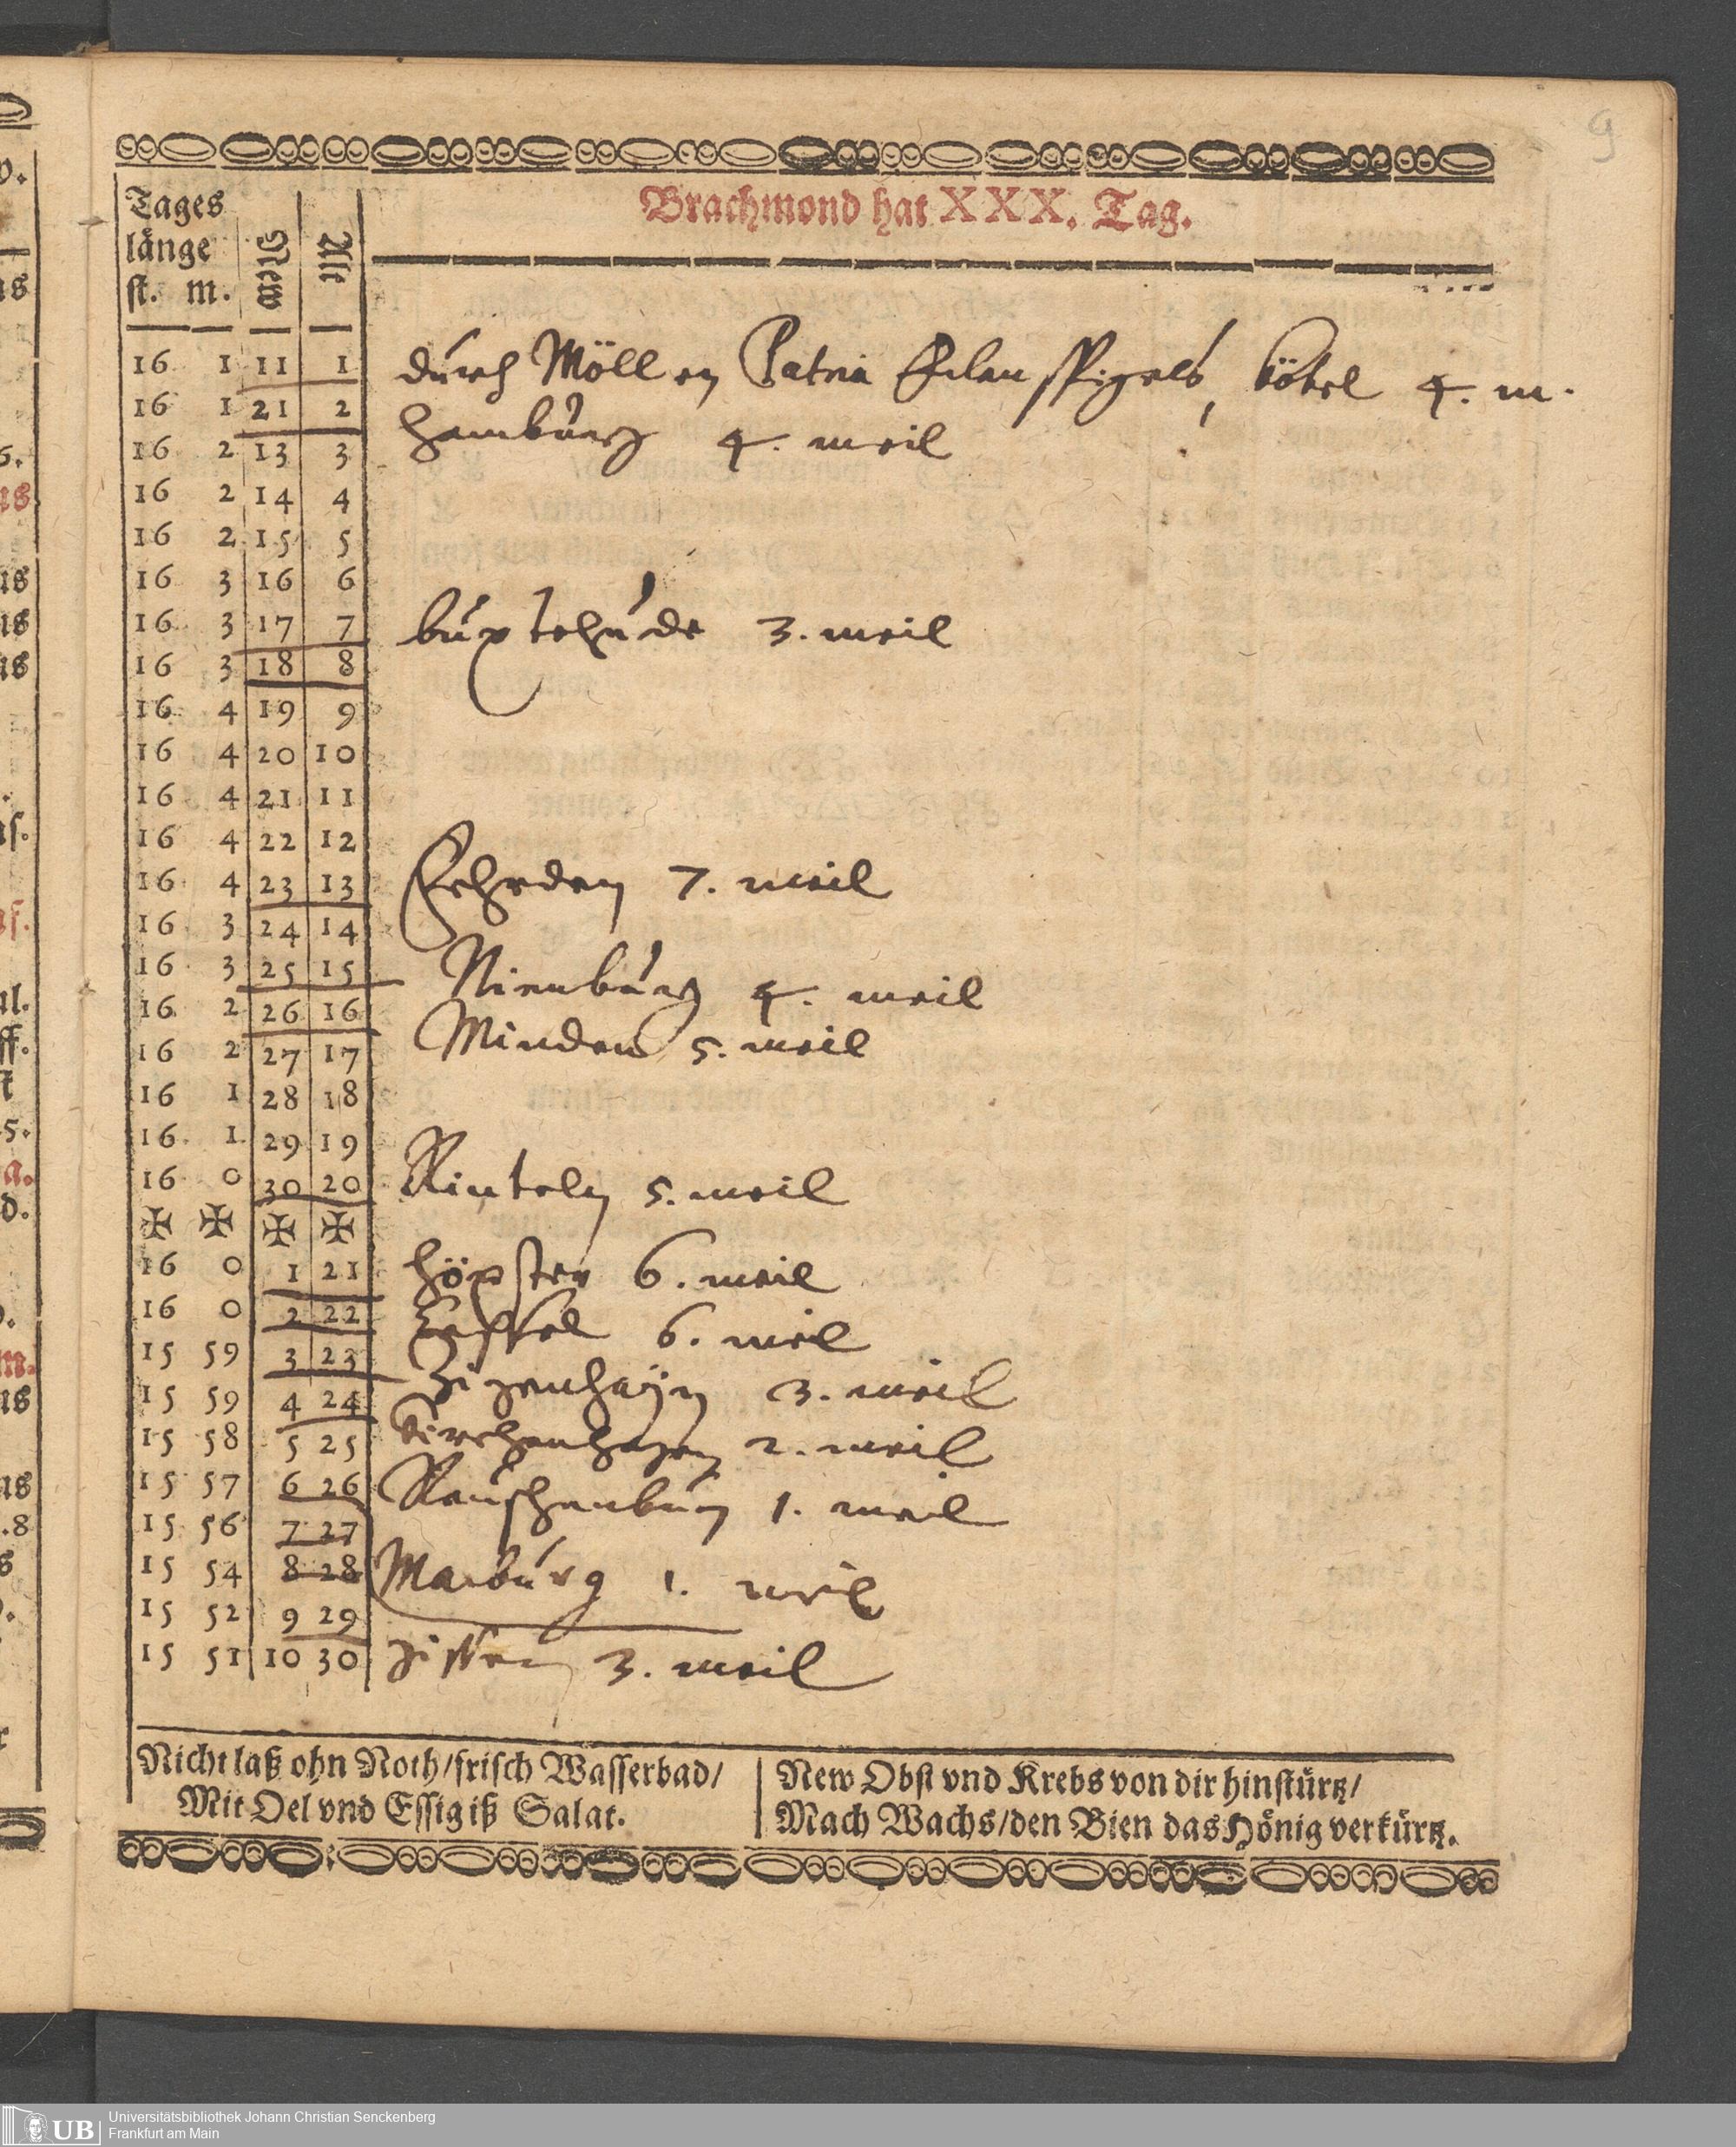 9
Brachmond hat XXX. Tag.
Tages
länge
st. m. New Alt
16 1 11 1 durch Möllen Patria Eulenspigels, kötel 4. m.
16 1 21 2 Hamburg 4. meil
16 2 13 3
16 2 14 4
16 2 15 5
16 3 16 6
16 3 17 7 buxtehude 3. meil
16 3 18 8
16 4 19 9
16 4 20 10
16 4 21 11
16 4 22 12
16 4 23 13 Fehrden 7. meil
16 3 24 14
16 3 25 15 Nienburg 4. meil
16 2 26 16 Minden 5. meil
16 2 27 17
16 1 28 18
16 1 29 19
16 0 30 20 Rinteln 5. meil
✠ ✠ ✠ ✠
16 0 1 21 höxster 6. meil
16 0 2 22 Cassel 6. meil
15 59 3 23 Zigenhayn 3. meil
15 59 4 24
15 58 5 25 kirchenhagen 2. meil
15 57 6 26 Rauschenburg 1. meil
15 56 7 27
15 54 8 28 Marburg 1. meil
15 52 9 29
15 51 10 30 Zissen 3. meil
Nicht laß ohn Noth/frisch Wasserbad/
Mit Oel vnd Essig iß Salat.
New Obst vnd Krebs von dir hinstürtz/
Mach Wachs/den Bien das Hönig verkürtz.
UB
Universitätsbibliothek Johann Christian Senckenberg
Frankfurt am Main